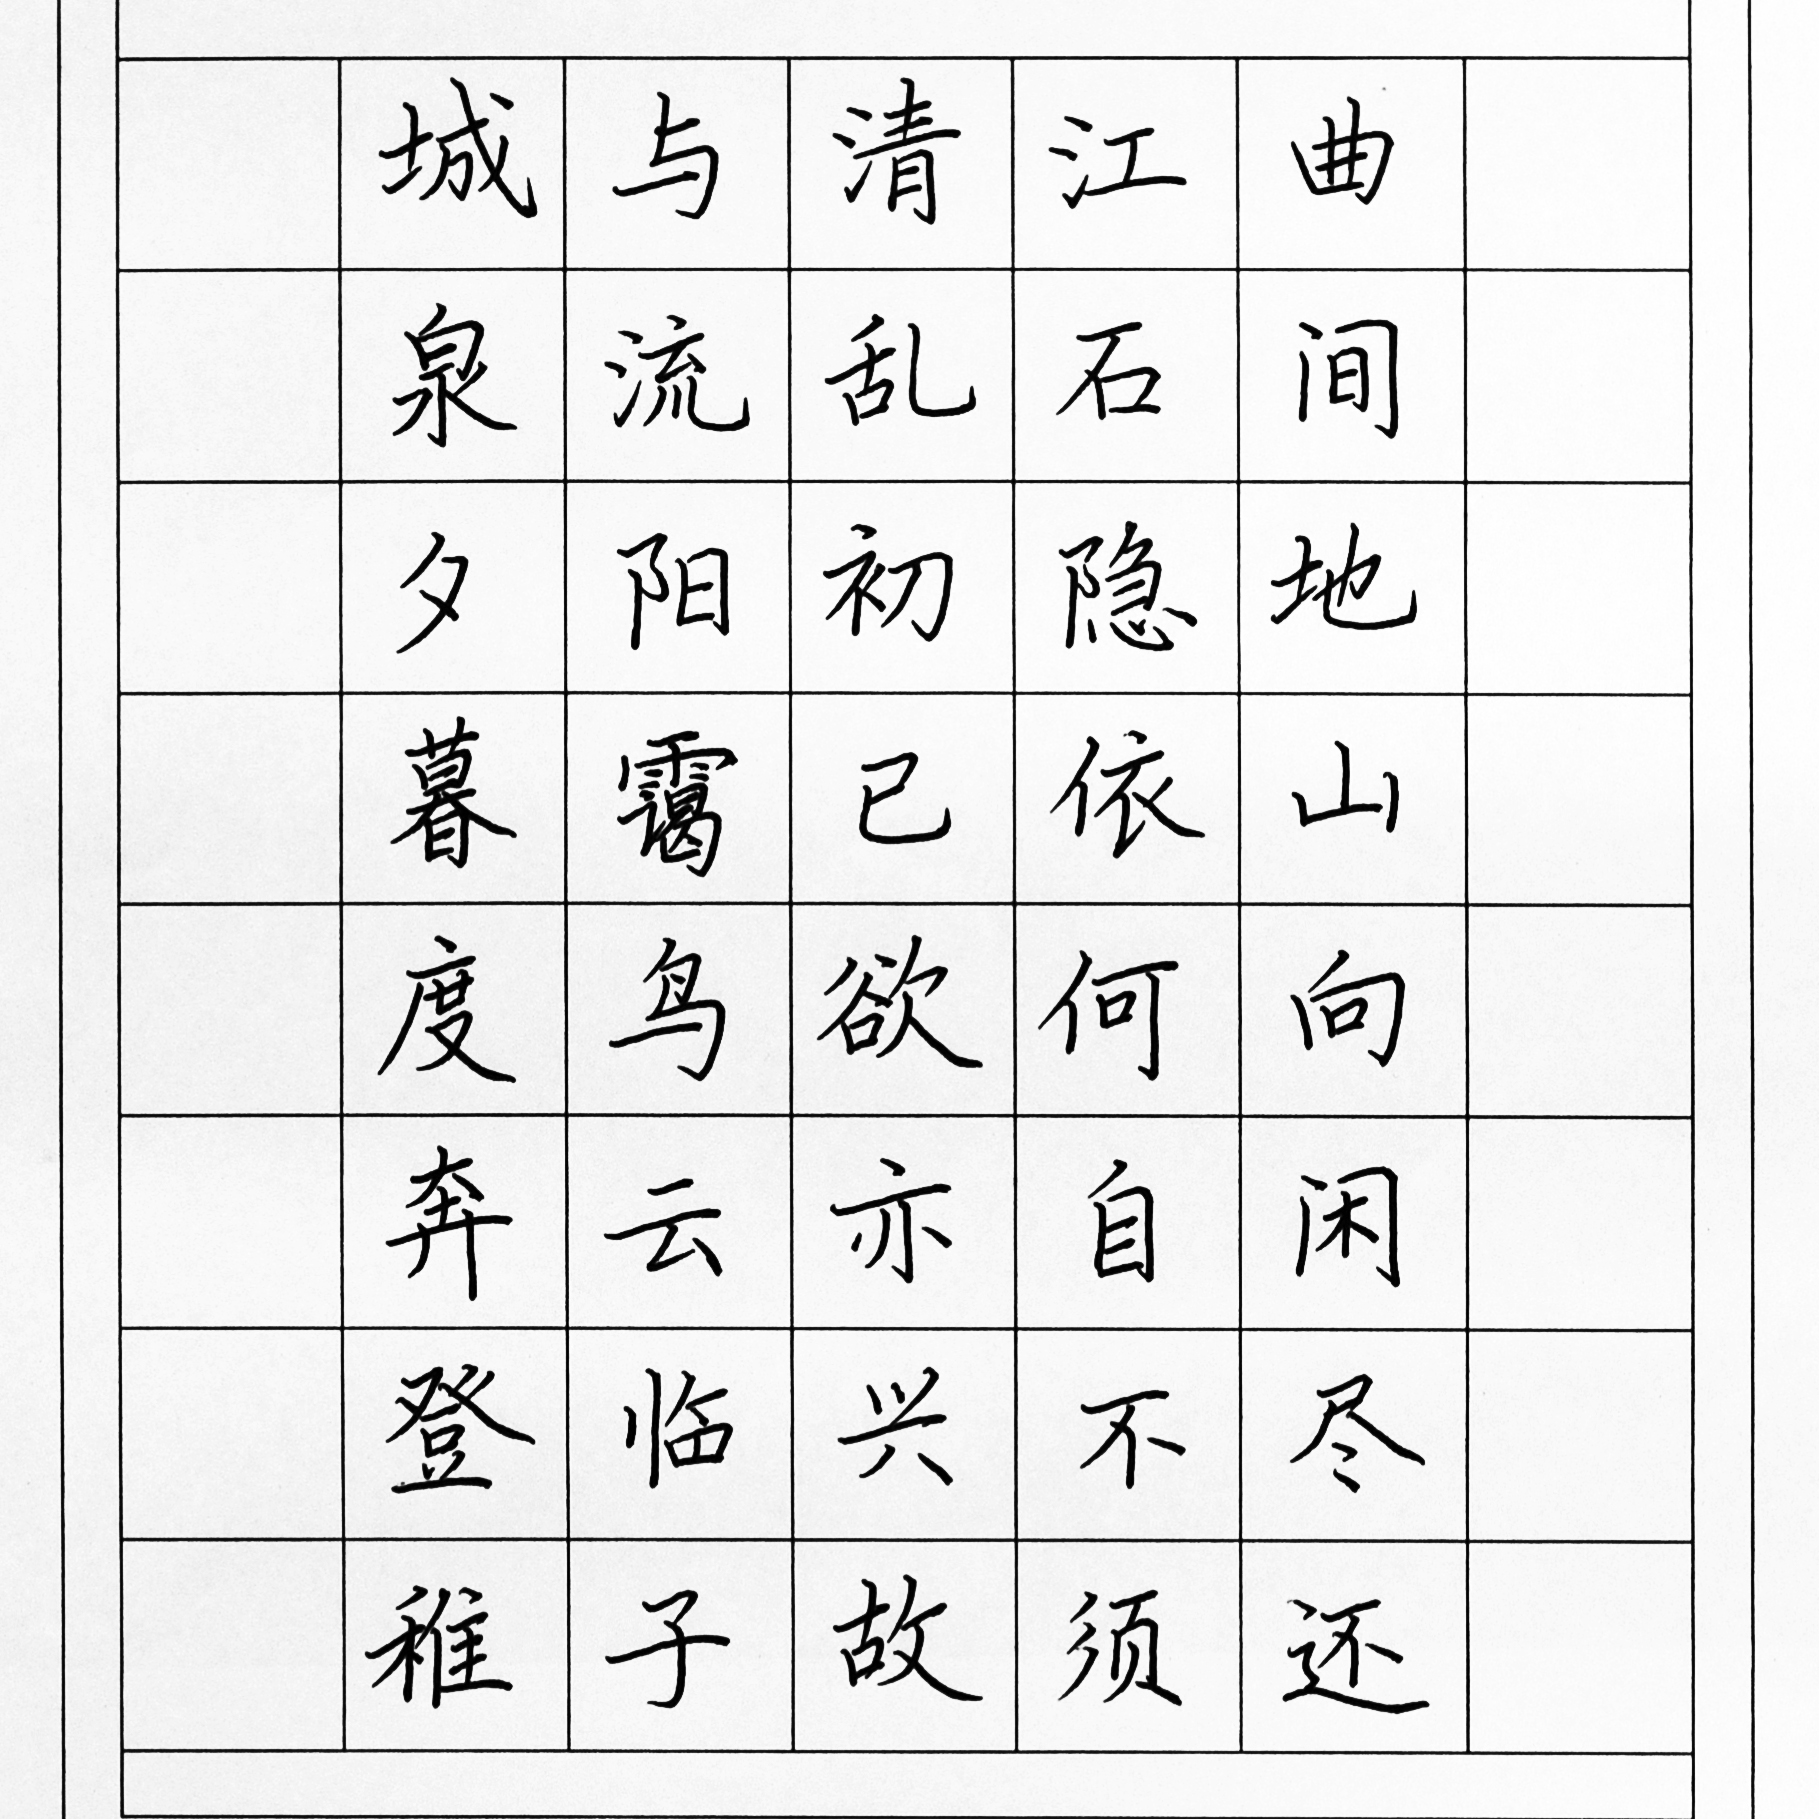 城与清江曲
泉流乱石间
夕阳初隐地
暮霭已依山
度鸟欲何向
奔云亦自闲
登临兴不尽
稚子故须还